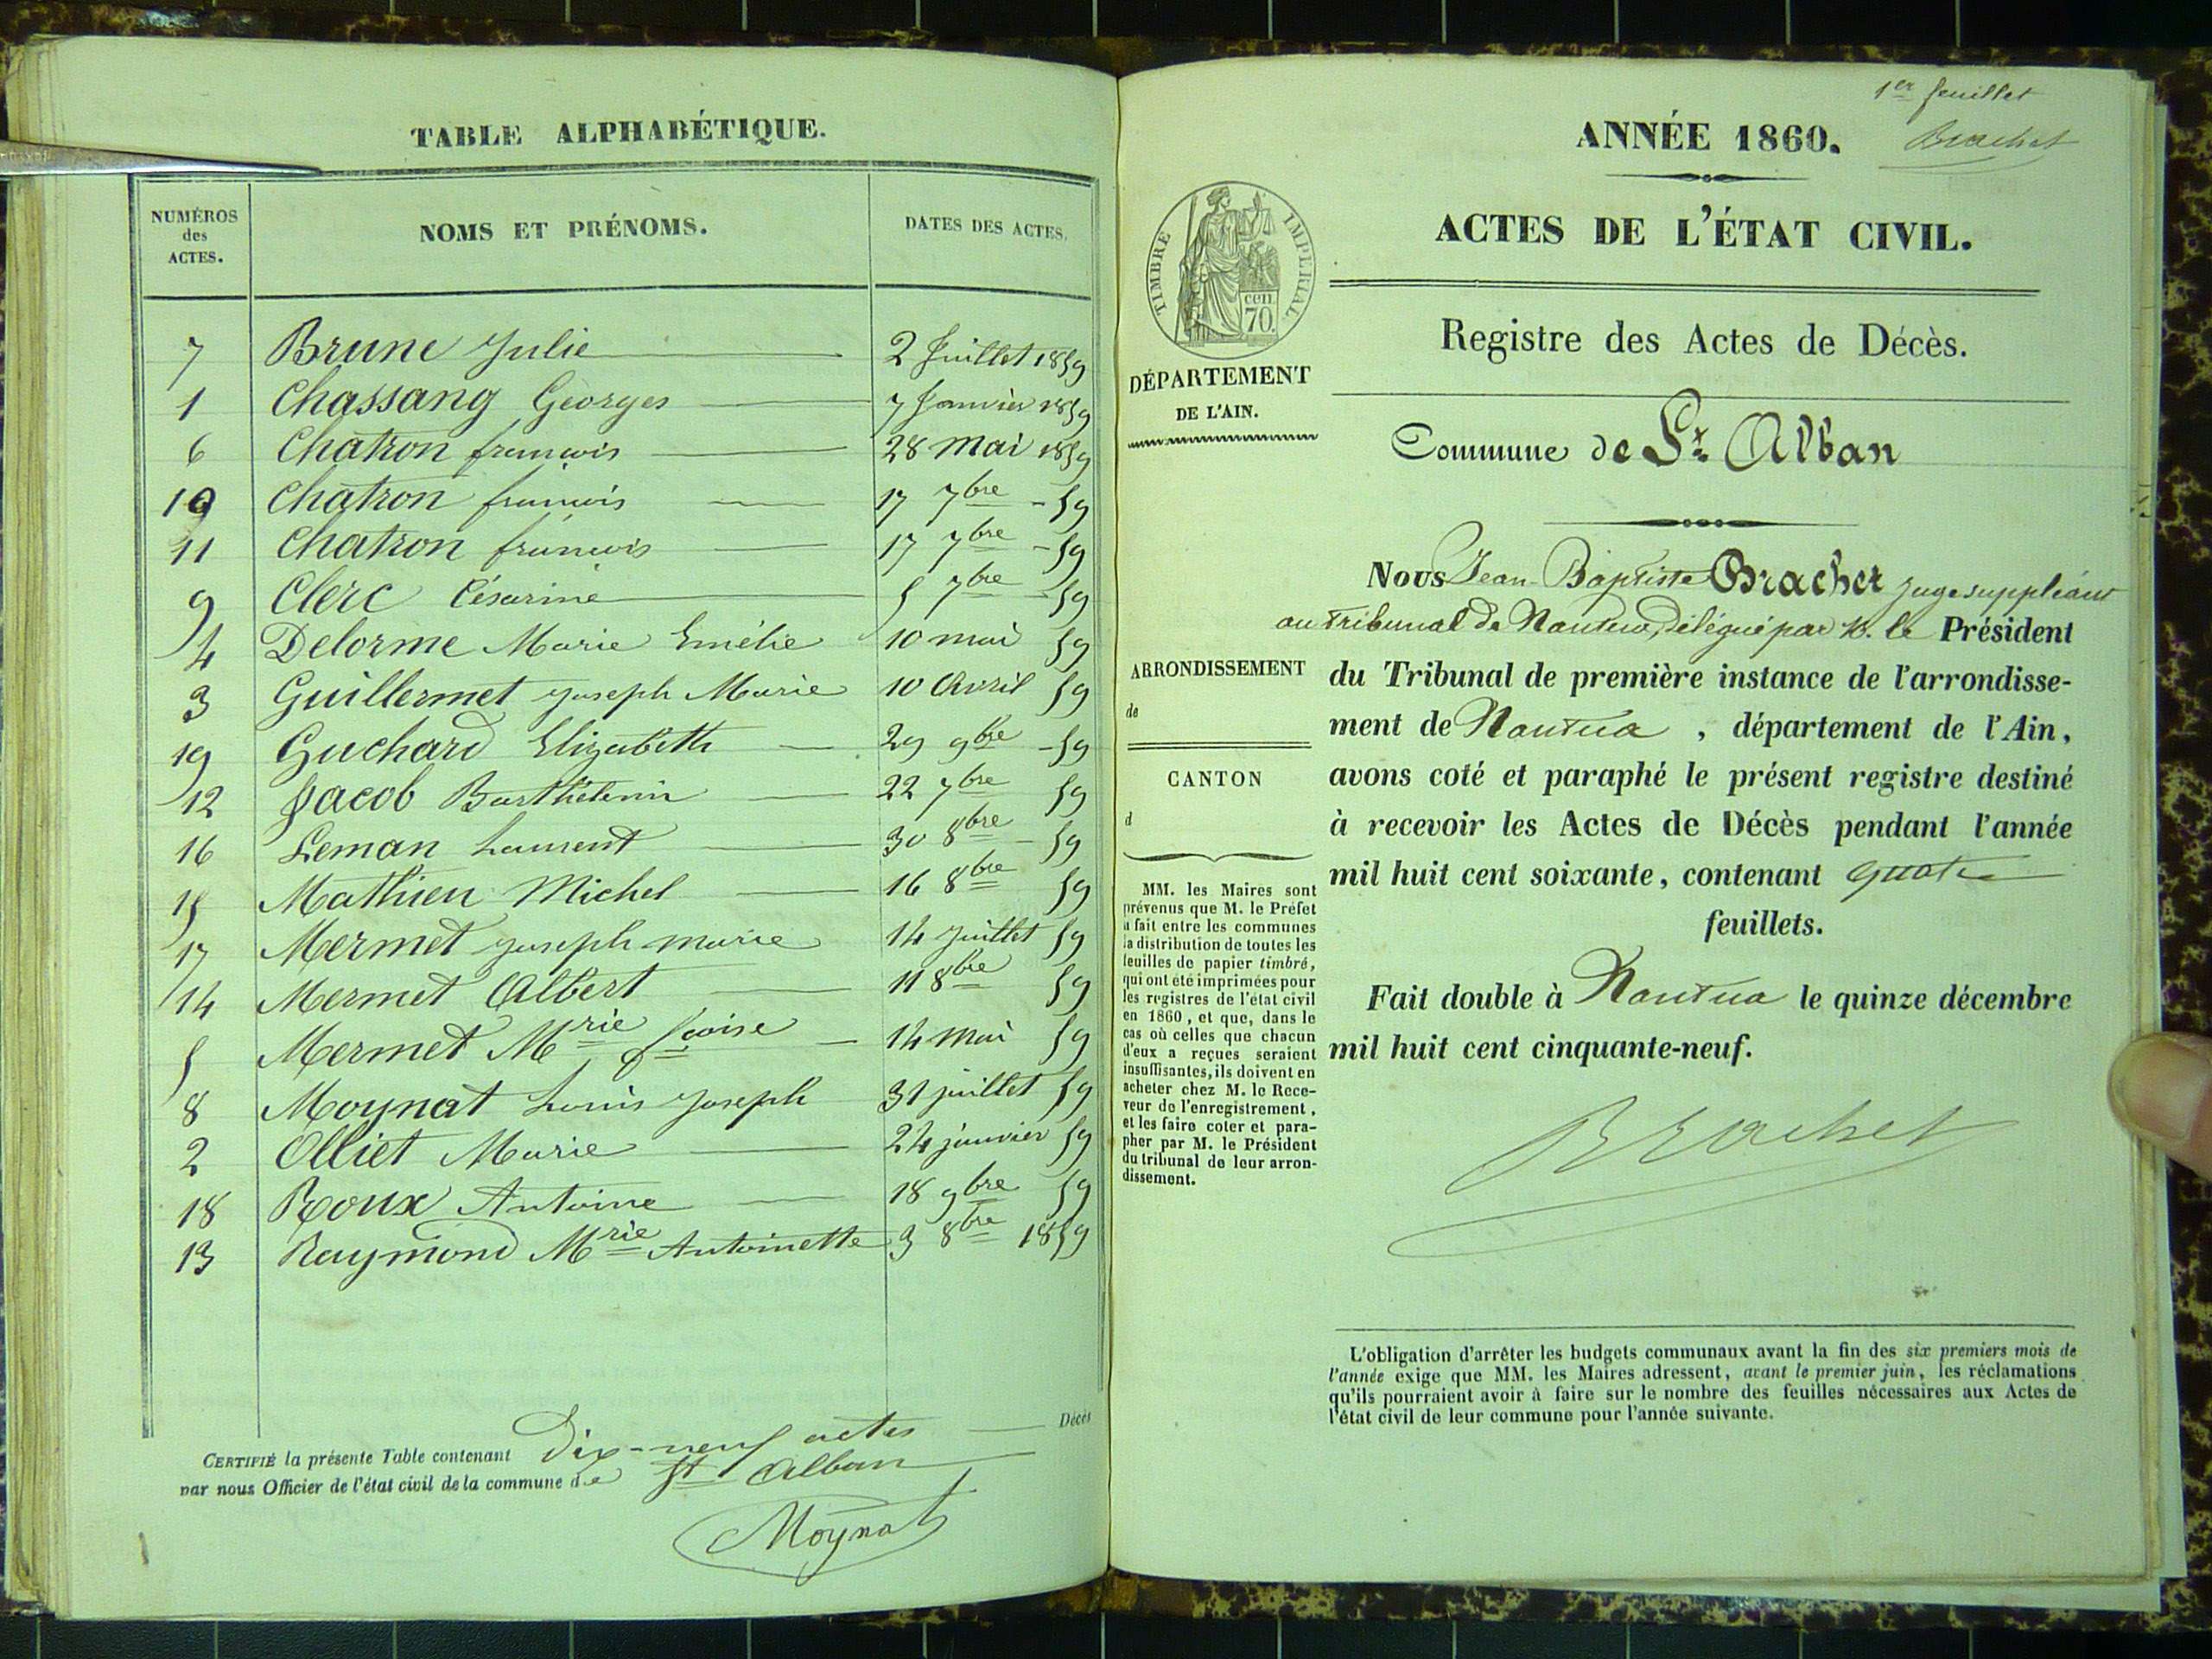 TABLE ALPHABÉTIQUE.
NUMÉROS des ACTES. NOMS ET PRÉNOMS. DATES DES ACTES.
7 Brune Julie 2 Juillet 1859
1 Chassang Georges 7 Janvier 1859
6 Chatron francois 28 Mai 1859
10 Chatron francois 17 7bre - 59
11 Chatron francois 17 7bre - 59
9 Clerc Césarine 5 7bre - 59
4 Delorme Marie Emélie 10 mai 59
3 Guillermet Joseph Marie 10 Avril 59
19 Guchard Elizabeth 29 9bre - 59
12 Jacob Barthélemi 22 7bre 59
16 Leman Laurent 30 8bre - 59
15 Mathieu Michel 16 8bre 59
17 Mermet Joseph marie 14 juillet 59
14 Mermet Albert 11 8bre 59
5 Mermet Mrie fcoise 14 Mai 59
8 Moynat Louis Joseph 31 juillet 59
2 Olliet Marie 24 janvier 59
18 Roux Antoine 18 9bre 59
13 Raymond Mrie Antoinette 3 8bre 1859
CERTIFIÉ la présente Table contenant Dix-neuf actes Décès
par nous Officier de l'état civil de la commune de St Alban
Moynat
1er feuillet
Brachet
ANNÉE 1860.
ACTES DE L'ÉTAT CIVIL.
TIMBRE IMPÉRIAL
cen. 70.
Registre des Actes de Décès.
DÉPARTEMENT
DE L'AIN.
Commune de St. Alban
Nous Jean-Baptiste Brachet Juge suppléant
au Tribunal de Nantua, délégué par M. le Président
du Tribunal de première instance de l'arrondisse-
ment de Nantua, département de l'Ain,
avons coté et paraphé le présent registre destiné
à recevoir les Actes de Décès pendant l'année
mil huit cent soixante, contenant quatre
feuillets.
Fait double à Nantua le quinze décembre
mil huit cent cinquante-neuf.
Brachet
ARRONDISSEMENT
de
CANTON
d
MM. les Maires sont
prévenus que M. le Préfet
a fait entre les communes
la distribution de toutes les
feuilles de papier timbré,
qui ont été imprimées pour
les registres de l'état civil
en 1860, et que, dans le
cas où celles que chacun
d'eux a reçues seraient
insuffisantes, ils doivent en
acheter chez M. le Rece-
veur de l'enregistrement,
et les faire coter et para-
pher par M. le Président
du tribunal de leur arron-
dissement.
L'obligation d'arrêter les budgets communaux avant la fin des six premiers mois de
l'année exige que MM. les Maires adressent, avant le premier juin, les réclamations
qu'ils pourraient avoir à faire sur le nombre des feuilles nécessaires aux Actes de
l'état civil de leur commune pour l'année suivante.